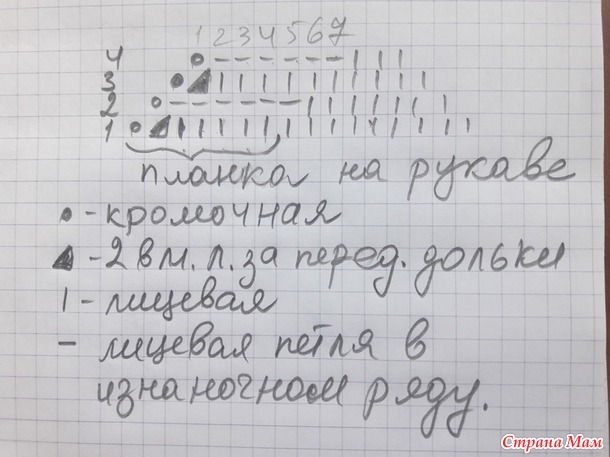 1 2 3 4 5 6 7
4 • – – – – – – | | |
3 • ◢ | | | | | | | | | |
2 • – – – – – – | | | | | | |
1 • ◢ | | | | | | | | | | | | | |
планка на рукаве
• - кромочная
◢ - 2 вм. л. за перед. дольки
| - лицевая
— - лицевая петля в
изнаночном ряду.
Страна Мам